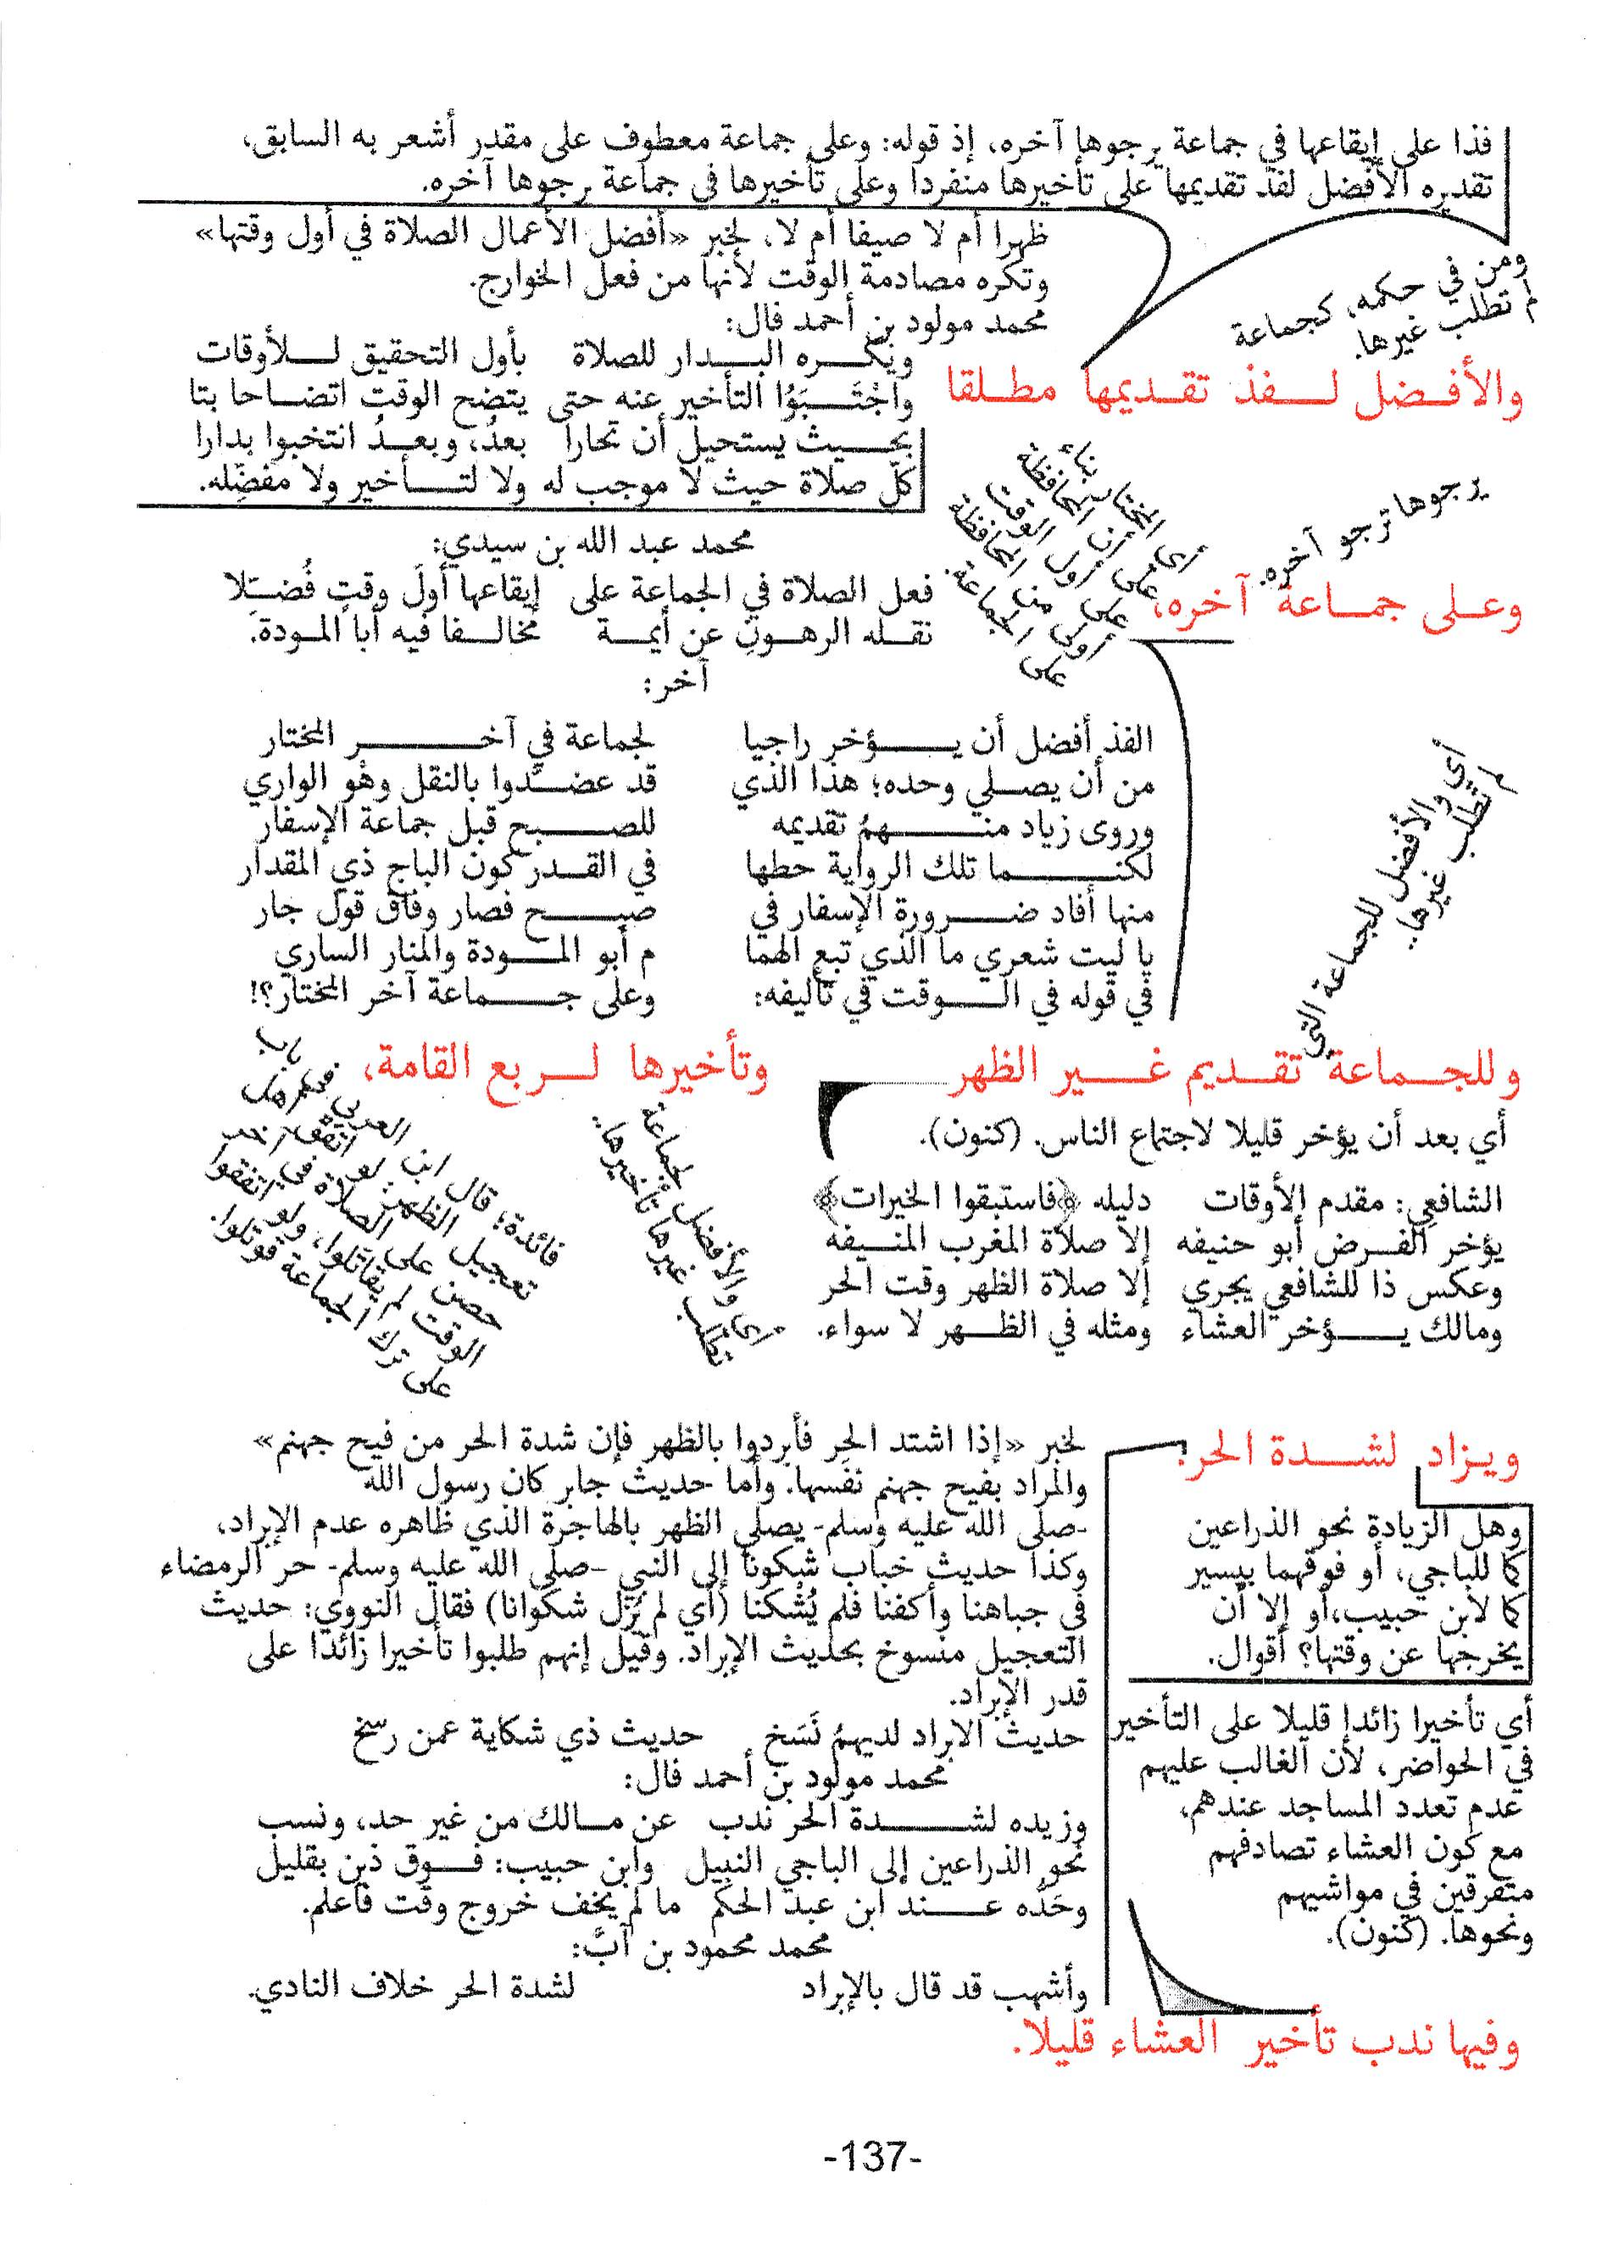 فذا على إيقاعها في جماعة يرجوها آخره، إذ قوله: وعلى جماعة معطوف على مقدر أشعر به السابق،
تقديره الأفضل لفذ تقديمها على تأخيرها منفردا وعلى تأخيرها في جماعة يرجوها آخره.
ظهرا أم لا صيفا أم لا، لخبر «أفضل الأعمال الصلاة في أول وقتها»
وتكره مصادمة الوقت لأنها من فعل الخوارج.
ومن في حكمه، كجماعة
لم تطلب غيرها.
محمد مولود بن أحمد فال:
ويكره البدار للصلاة بأول التحقيق للأوقات
واجْتَبَوُا التأخير عنه حتى يتضح الوقت اتضاحا بتا
بحيث يستحيل أن تحارا بعدُ، وبعدُ انتخبوا بدارا
كلّ صلاة حيث لا موجب له ولا لتأخير ولا مفضِّله.
والأفضل لفذ تقديمها مطلقا
أي المختار بناء
على أن المحافظة
على أول الوقت
أولى من المحافظة
على الجماعة.
يرجوها ترجو آخره.
محمد عبد الله بن سيدي:
فعل الصلاة في الجماعة على إيقاعها أولَ وقتٍ فُضِّلا
نقله الرهونِ عن أيمة مخالفا فيه أبا المودة.
وعلى جماعة آخره،
آخر:
الفذ أفضل أن يؤخر راجيا لجماعة في آخر المختار
من أن يصلي وحده؛ هذا الذي قد عضّدوا بالنقل وهْو الواري
وروى زياد منهمُ تقديمه للصبح قبل جماعة الإسفار
لكنما تلك الرواية حطها في القدر كون الباج ذي المقدار
منها أفاد ضرورة الإسفار في صبح فصار وفاق قول جار
يا ليت شعري ما الذي تبع الهما م أبو المودة والمنار الساري
في قوله في الوقت في تأليفه: وعلى جماعة آخر المختار؟!
أي والأفضل للجماعة التي
لم تطلب غيرها..
وللجماعة تقديم غير الظهر وتأخيرها لربع القامة،
أي بعد أن يؤخر قليلا لاجتماع الناس. (كنون).
الشافعِي: مقدم الأوقات دليله ﴿فاستبقوا الخيرات﴾
يؤخر الفرض أبو حنيفه إلا صلاة المغرب المنيفه
وعكس ذا للشافعي يجري إلا صلاة الظهر وقت الحر
ومالك يؤخر العشاء ومثله في الظهر لا سواء.
أي والأفضل لجماعة
تطلب غيرها تأخيرها..
فائدة؛ قال ابن العربي في باب
تعجيل الظهر: لو اتفق أهل
حصن على الصلاة في آخر
الوقت لم يقاتلوا، ولو اتفقوا
على ترك الجماعة قوتلوا.
ويزاد لشدة الحر؛
لخبر «إذا اشتد الحر فأبردوا بالظهر فإن شدة الحر من فيح جهنم»
والمراد بفيح جهنم نفَسها. وأما حديث جابر كان رسول الله
-صلى الله عليه وسلم- يصلي الظهر بالهاجرة الذي ظاهره عدم الإبراد،
وكذا حديث خباب شكونا إلى النبي –صلى الله عليه وسلم- حر الرمضاء
في جباهنا وأكفنا فلم يُشْكنا (أي لم يُزل شكوانا) فقال النووي: حديث
التعجيل منسوخ بحديث الإبراد. وقيل إنهم طلبوا تأخيرا زائدا على
قدر الإبراد.
حديث الابراد لديهمُ نَسَخ حديث ذي شكاية عمن رسخ
محمد مولود بن أحمد فال:
وزيده لشدة الحر ندب عن مالك من غير حد، ونسب
نحو الذراعين إلى الباجي النبيل وابن حبيب: فوق ذين بقليل
وحَدُّه عند ابن عبد الحكَم ما لم يخف خروج وقت فاعلم.
محمد محمود بن آبَّ:
وأشهب قد قال بالإبراد لشدة الحر خلاف النادي.
وهل الزيادة نحو الذراعين
كما للباجي، أو فوقهما بيسير
كما لابن حبيب،أو إلا أن
يخرجها عن وقتها؟ أقوال.
أي تأخيرا زائدا قليلا على التأخير
في الحواضر، لأن الغالب عليهم
عدم تعدد المساجد عندهم،
مع كون العشاء تصادفهم
متفرقين في مواشيهم
ونحوها. (كنون).
وفيها ندب تأخير العشاء قليلا.
-137-